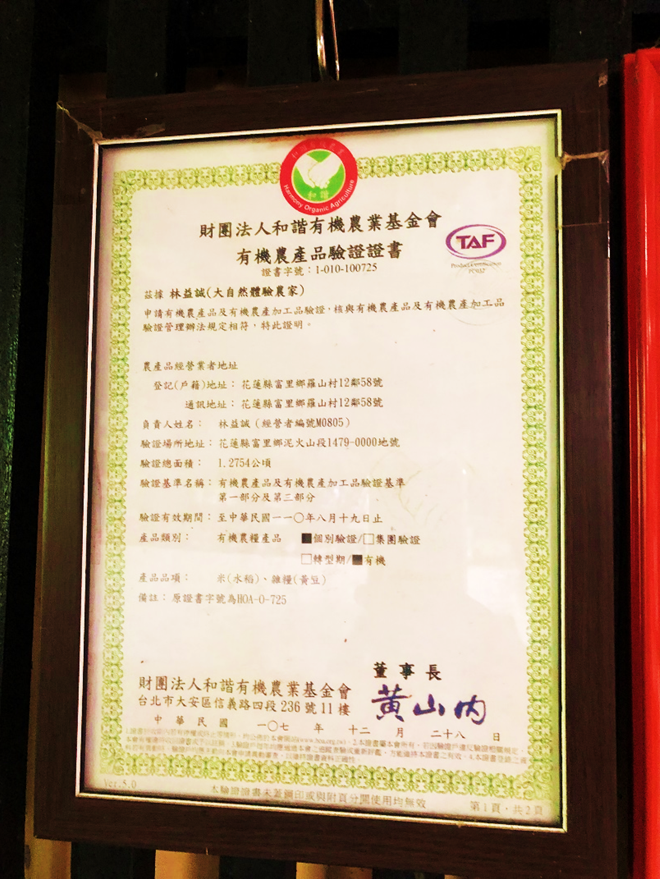 和諧有機農業
Harmony Organic Agriculture
和諧
財團法人和諧有機農業基金會
有機農產品驗證證書
證書字號：1-010-100725
TAF
茲據 林益誠(大自然體驗農家)
申請有機農產品及有機農產加工品驗證，核與有機農產品及有機農產加工品
驗證管理辦法規定相符，特此證明。
農產品經營業者地址
登記(戶籍)地址： 花蓮縣富里鄉羅山村12鄰58號
通訊地址： 花蓮縣富里鄉羅山村12鄰58號
負責人姓名： 林益誠 (經營者編號M0805)
驗證場所地址： 花蓮縣富里鄉泥火山段1479-0000地號
驗證總面積： 1.2754公頃
驗證基準名稱： 有機農產品及有機農產加工品驗證基準
第一部分及第二部分
驗證有效期間： 至中華民國一一〇年八月十九日止
產品類別： 有機農糧產品 ■個別驗證/□集團驗證
□轉型期/■有機
產品品項： 米(水稻)、雜糧(黃豆)
備註：原證書字號為HOA-O-725
董事長
財團法人和諧有機農業基金會
黃山內
台北市大安區信義路四段236號11樓
中華民國 一〇七 年 十二 月 二十八 日
Ver:5.0
本驗證證書未蓋鋼印或與附頁分開使用均無效
第1頁，共2頁